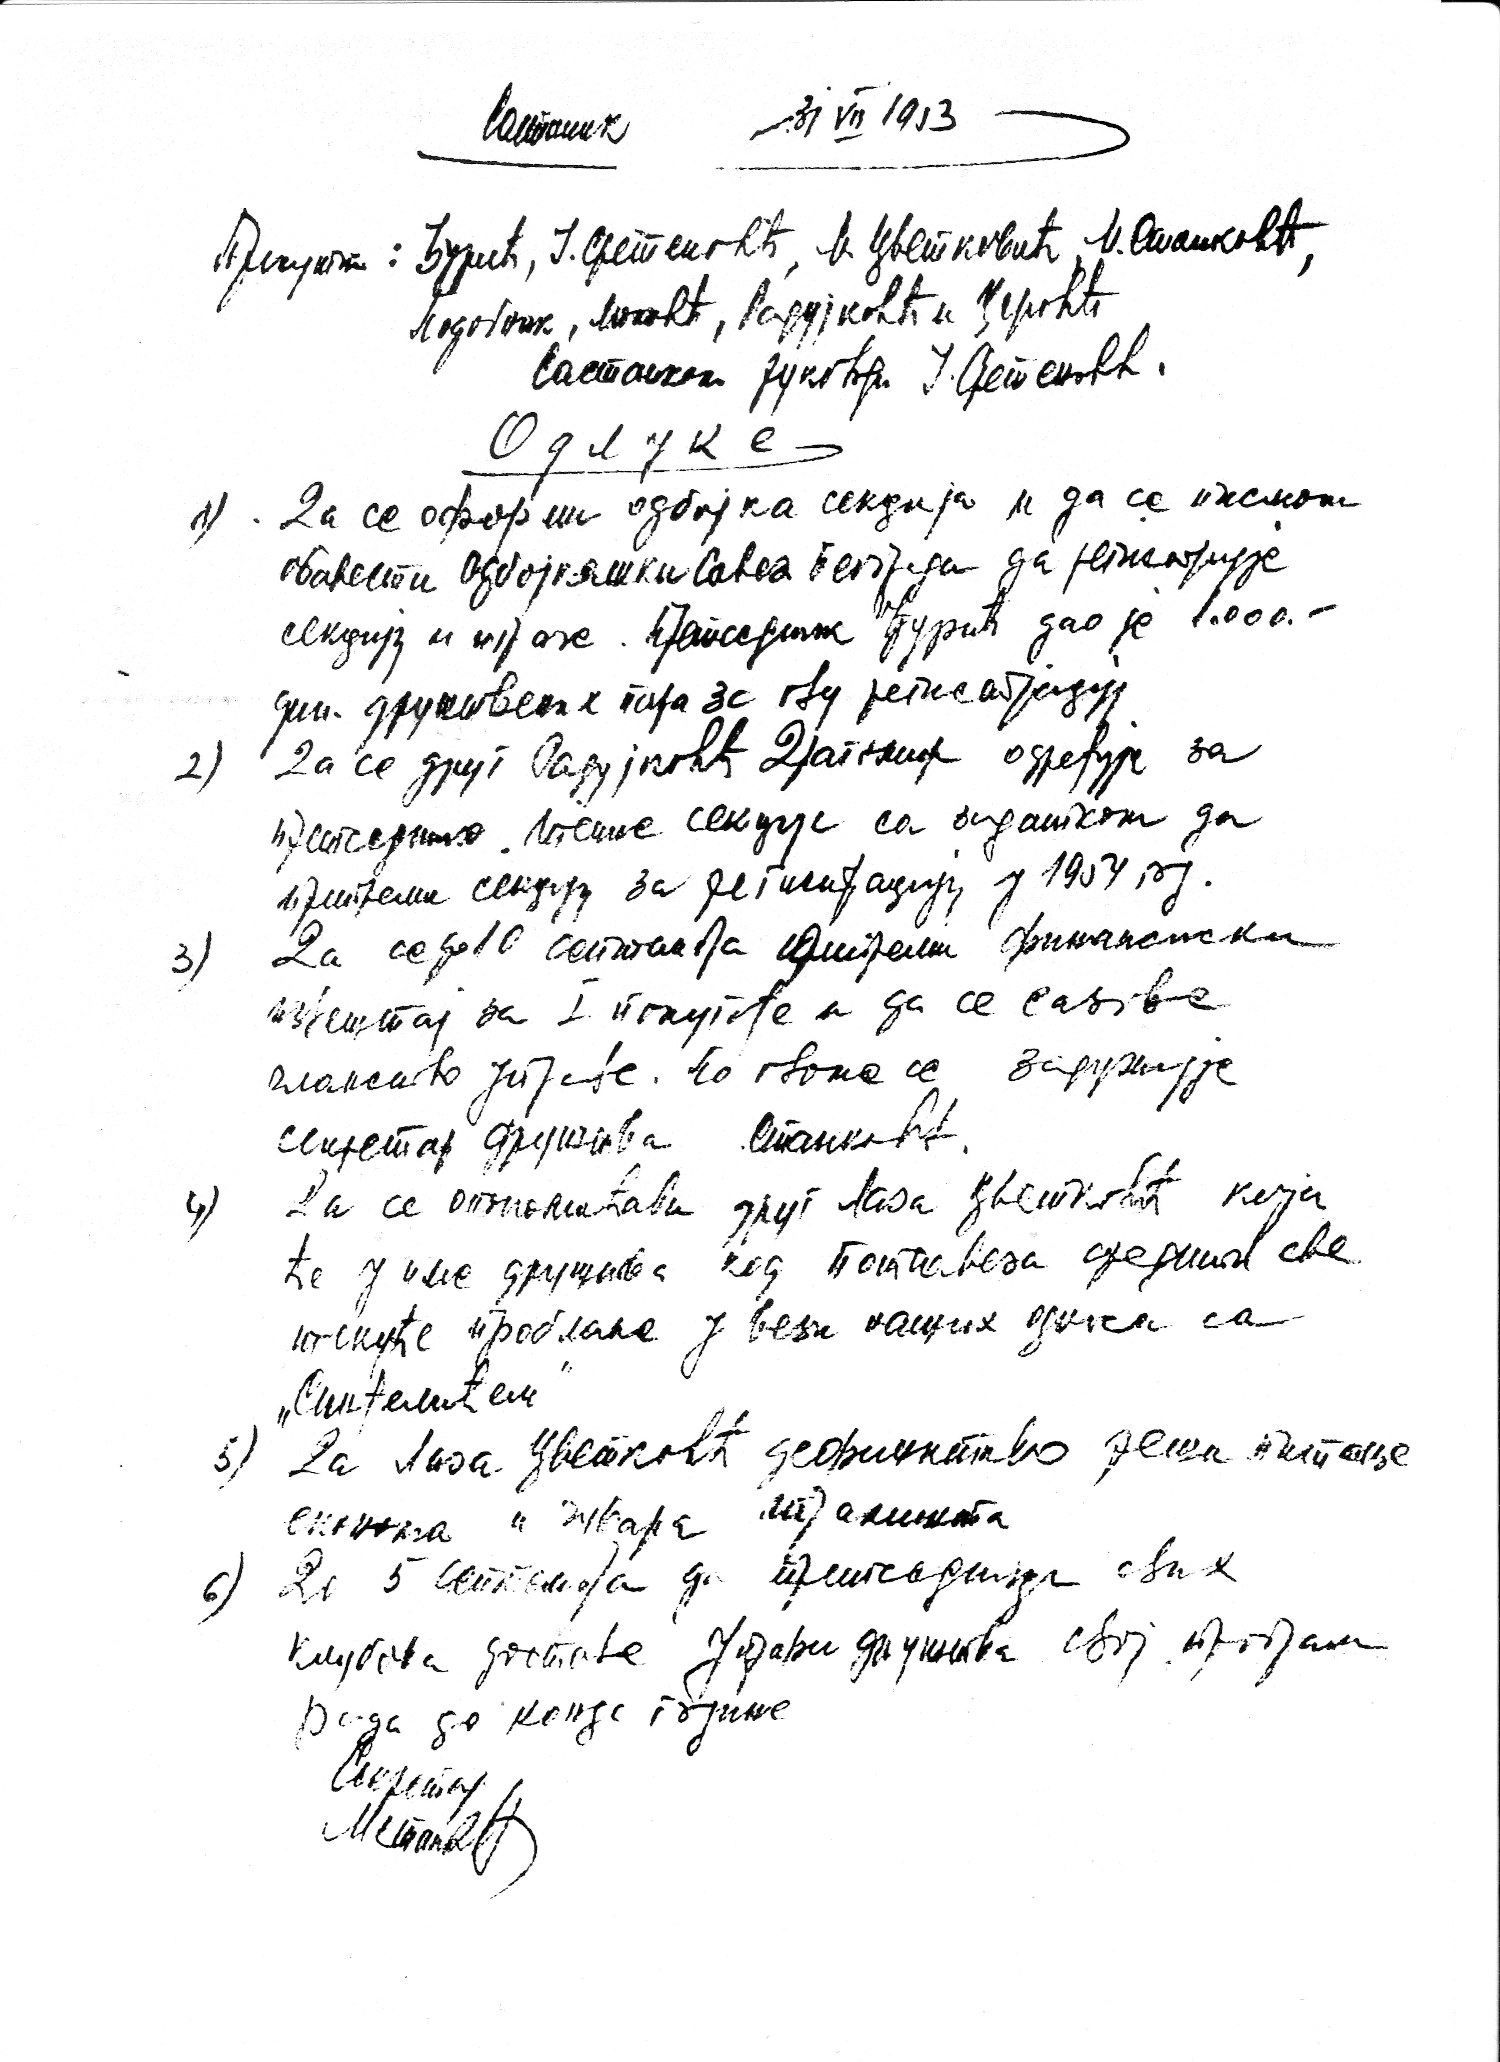 Састанак 31 VII 1953
Присутни: Ђурић, Ј. Сретеновић, Л. Цветковић, М. Станковић,
Радујковић и Церовић
Састанком руководи Ј. Сретеновић.
Одлуке
1) Да се оформи одбојка секција и да се писмом
обавести Одбојкашки Савез Београда да региструје
секцију и играче. Претседник Ђурић дао је 1.000.-
дин. друштвених пара за ову регистрацију
2) Да се друг Радујковић Драгомир одређује за
претседника секције са задатком да
припреми секцију за регистрацију у 1954 год.
3) Да се до 10 септембра припреми финансиски
извештај за I полугође и да се сазове
чланство Управе. По овоме се задужује
секретар друштва Станковић.
4) Да се опуномоћава друг Лаза Цветковић који
ће у име друштва код Потсавеза средити све
текуће проблеме у вези наших односа са
„Синђелићем"
5) Да Лаза Цветковић дефинитивно реши питање
економа и чувара игралишта
6) До 5 Септембра да претседници свих
клубова доставе Управи друштва свој програм
рада до конца године
Секретар
МСтанковић